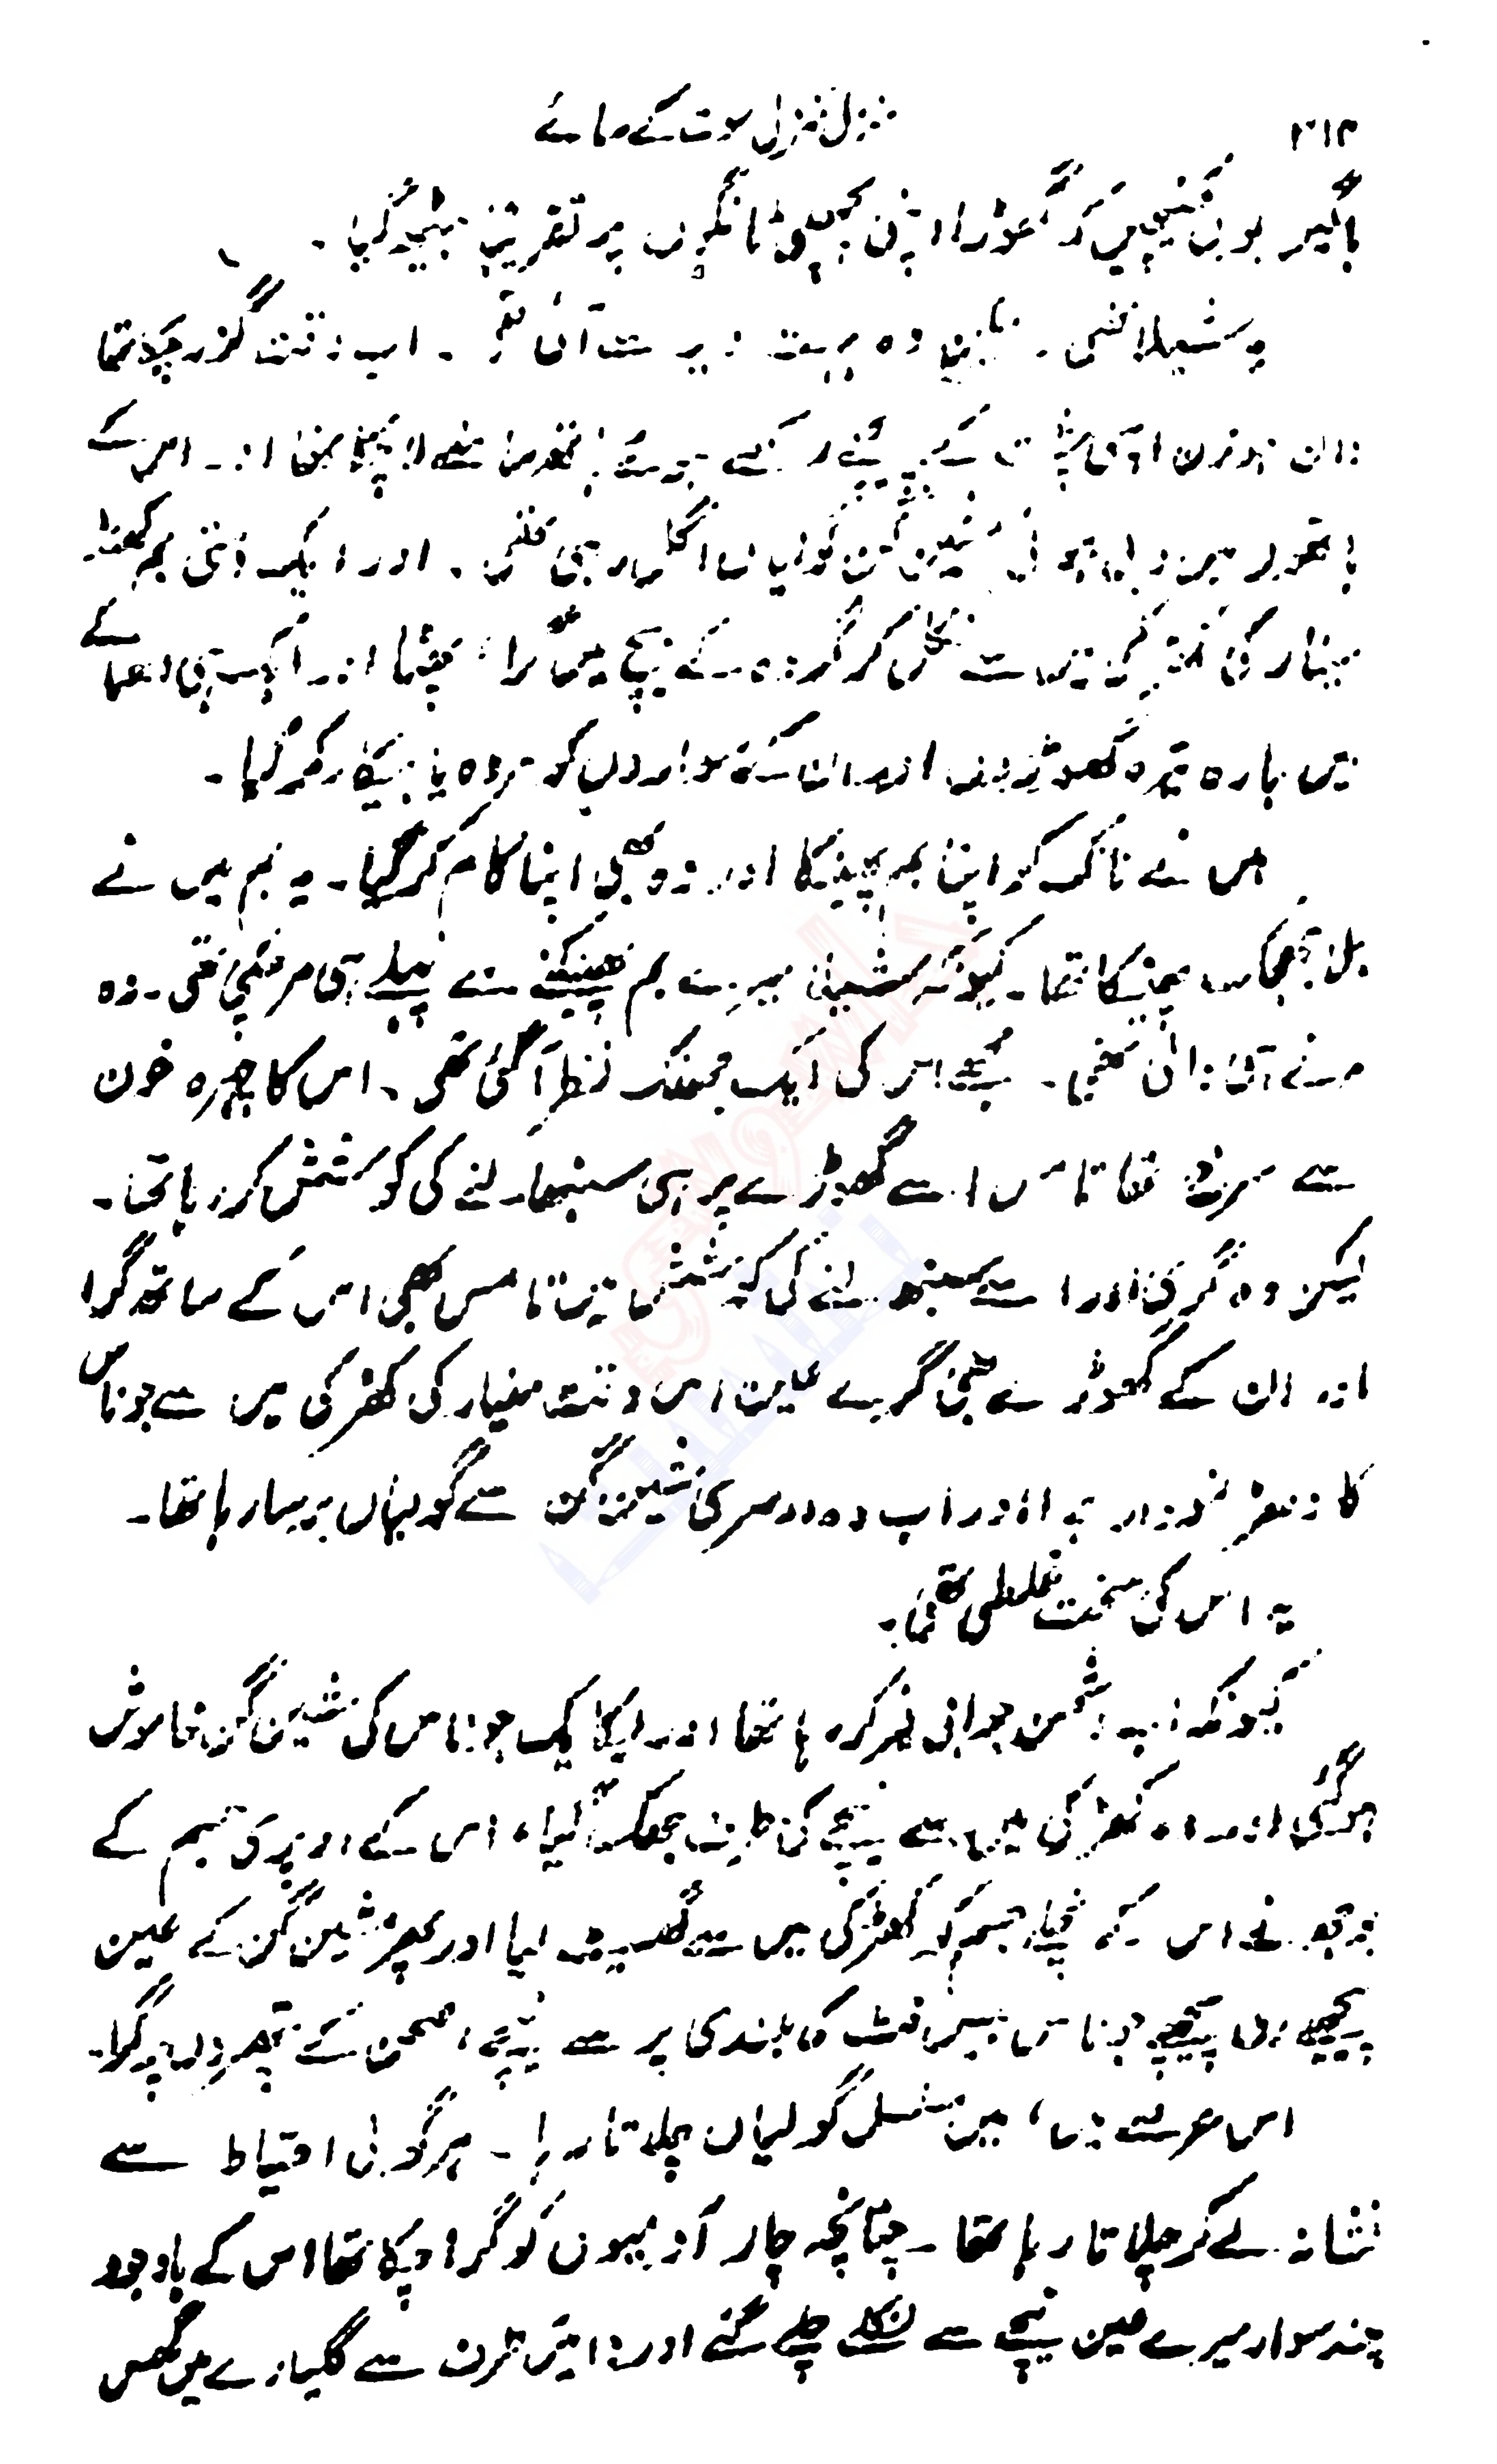 ۲۱۴ منزل منزل موت کے سائے
باگیں یوں کھینچیں کہ گھوڑا اپنی پچھلی ٹانگوں پر تقریباً بیٹھ گیا ۔
یہ شیلا تھی ۔ لیکن وہ بہت دیر سے آئی تھی ۔ اب وقت گزر چکا تھا
اس کے
ہاتھوں میں دبی ہوئی مشین گن گولیاں اگل رہی تھی ۔ اور ایک دستی بم گھنٹہ
مینار کی کھڑکی میں سے نکل کر گروہ کے بیچ میں گرا ، پھٹا اور ایک ہی دھماکے
میں بارہ تیرہ گھوڑوں اور ان کے سواروں کو مردہ یا بیکار کر گیا ۔
میں نے تاک کر اپنا بم پھینکا اور وہ بھی اپنا کام کر گیا ۔ یہ بم میں نے
بلا جھجک پھینکا تھا ۔ کیونکہ شیلا میرے بم پھینکنے سے پہلے ہی مر چکی تھی ۔ وہ
مرنے ہی والی تھی ۔ مجھے اس کی ایک جھلک نظر آگئی تھی ۔ اس کا چہرہ خون
سے سرخ تھا تامس اسے گھوڑے پر ہی سنبھالنے کی کوشش کر رہا تھا ۔
لیکن وہ گری اور اسے سنبھالنے کی کوشش میں تامس بھی اس کے ساتھ گرا
اور ان کے گھوڑے بھی گرے عین اس وقت مینار کی کھڑکی میں سے جوناس
کا دھڑ نمودار ہوا اور اب وہ دوسری مشین گن سے گولیاں برسا رہا تھا ۔
یہ اس کی سخت غلطی تھی ۔
کیونکہ اب دشمن جوابی فائر کر رہا تھا اور ایکا ایک جوناس کی مشین گن خاموش
ہوگئی اور وہ کھڑکی میں سے نیچے کی طرف جھک گیا ، اس کے اوپری جسم کے
بوجھ نے اس کے نچلے جسم کو کھڑکی میں سے گھسیٹ لیا اور پھر مشین گن کے عین
پیچھے ہی پیچھے جوناس بیس فٹ کی بلندی پر سے نیچے ، صحن کے پتھروں پر گرا ۔
اس عرصے میں ، میں مسلسل گولیاں چلاتا رہا ۔ ہر گولی احتیاط سے
نشانہ لے کر چلاتا رہا تھا ۔ چنانچہ چار آدمیوں کو گرا چکا تھا اس کے باوجود
چند سوار میرے عین نیچے سے نکلے چلے گئے اور دائیں طرف سے گلیارے میں گھس